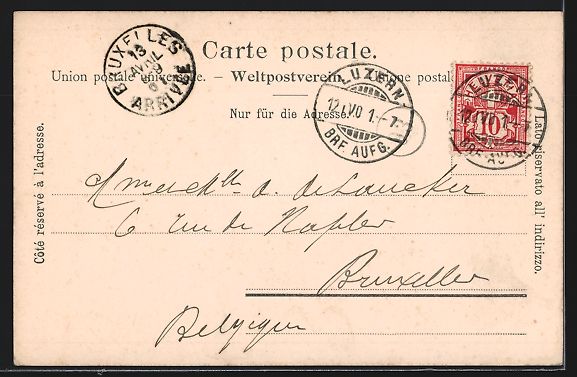 Carte postale.
Union postale universelle. – Weltpostverein. – Unione postale
Nur für die Adresse.
BRUXELLES
13
AVRIL
ARRIVÉE
LUZERN.
12.IV.01.–7.
BRF. AUFG.
LUZERN.
BRF. AUFG.
10
Côté réservé à l'adresse.
Lato riservato all' indirizzo.
6 rue de Naples
Bruxelles
Belgique